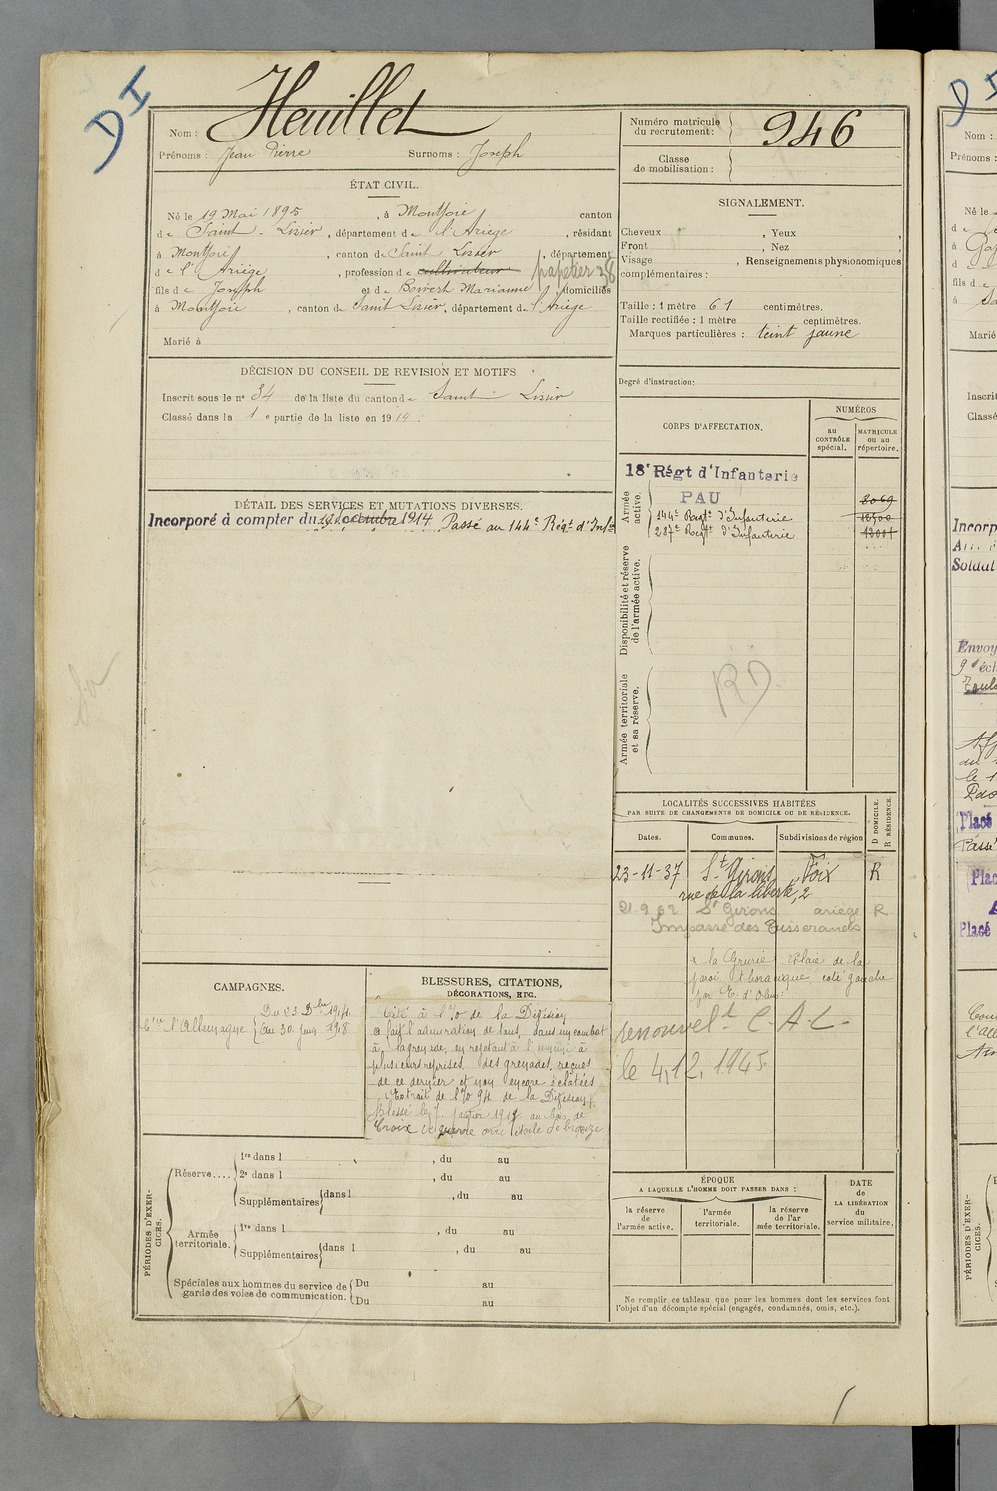 D I
Nom : Heuillet
Prénoms : Jean Pierre Surnoms : Joseph
Numéro matricule du recrutement : 946
Classe de mobilisation :
ÉTAT CIVIL.
Né le 19 Mai 1895, à Montjoie canton
de Saint-Lizier, département de l'Ariège, résidant
à Montjoie, canton de Saint Lizier, département
de l'Ariège, profession de cultivateur papetier 38
fils de Joseph et de Marianne, domiciliés
à Montjoie, canton de Saint Lizier, département de l'Ariège
Marié à
SIGNALEMENT.
Cheveux , Yeux ,
Front , Nez
Visage , Renseignements physionomiques
complémentaires :
Taille : 1 mètre 61 centimètres.
Taille rectifiée : 1 mètre centimètres.
Marques particulières : teint jaune
Degré d'instruction:
DÉCISION DU CONSEIL DE REVISION ET MOTIFS
Inscrit sous le no 34 de la liste du canton de Saint Lizier
Classé dans la 1 e partie de la liste en 1914.
DÉTAIL DES SERVICES ET MUTATIONS DIVERSES.
Incorporé à compter du Décembre 1914 Passé au 144e Régt d'Infie
CORPS D'AFFECTATION.
NUMÉROS
au CONTRÔLE spécial.
MATRICULE ou au répertoire.
Armée active.
18e Régt d'Infanterie
PAU 2069
144e Regt d'Infanterie 10500
287e Regt d'Infanterie 13001
Disponibilité et réserve de l'armée active.
Armée territoriale et sa réserve.
RD
LOCALITÉS SUCCESSIVES HABITÉES
PAR SUITE DE CHANGEMENTS DE DOMICILE OU DE RÉSIDENCE.
Dates. Communes. Subdivisions de région D DOMICILE. R RÉSIDENCE.
23-11-37 St Girons Foix R
rue de la liberté, 2
21.9.62 St Girons ariège R
Impasse des Tisserands
à la Gruerie Plaie de la
paroi thoracique coté gauche
par E. d'Obus
renouvelt C-A-C-
le 4.12.1945
CAMPAGNES.
Ctre l'Allemagne { Du 23 Dbre 1914
Au 30 1918
BLESSURES, CITATIONS,
DÉCORATIONS, ETC.
Cité à l'O de la Division
a fait l'admiration de tous, dans un combat
à la grenade, en rejetant à l'ennemi à
plusieurs reprises des grenades reçues
de ce dernier et non encore éclatées
Extrait de l'O 94 de la Division
Blessé le 7 janvier au bois de
Croix de guerre avec étoile de bronze
PÉRIODES D'EXERCICES.
Réserve.... 1re dans l , du au
2e dans l , du au
Supplémentaires dans l , du au
Armée territoriale. 1re dans l , du au
Supplémentaires dans l , du au
Spéciales aux hommes du service de garde des voies de communication. Du au
Du au
ÉPOQUE
A LAQUELLE L'HOMME DOIT PASSER DANS :
la réserve de l'armée active.
l'armée territoriale.
la réserve de l'armée territoriale.
DATE de LA LIBÉRATION du service militaire.
Ne remplir ce tableau que pour les hommes dont les services font
l'objet d'un décompte spécial (engagés, condamnés, omis, etc.).